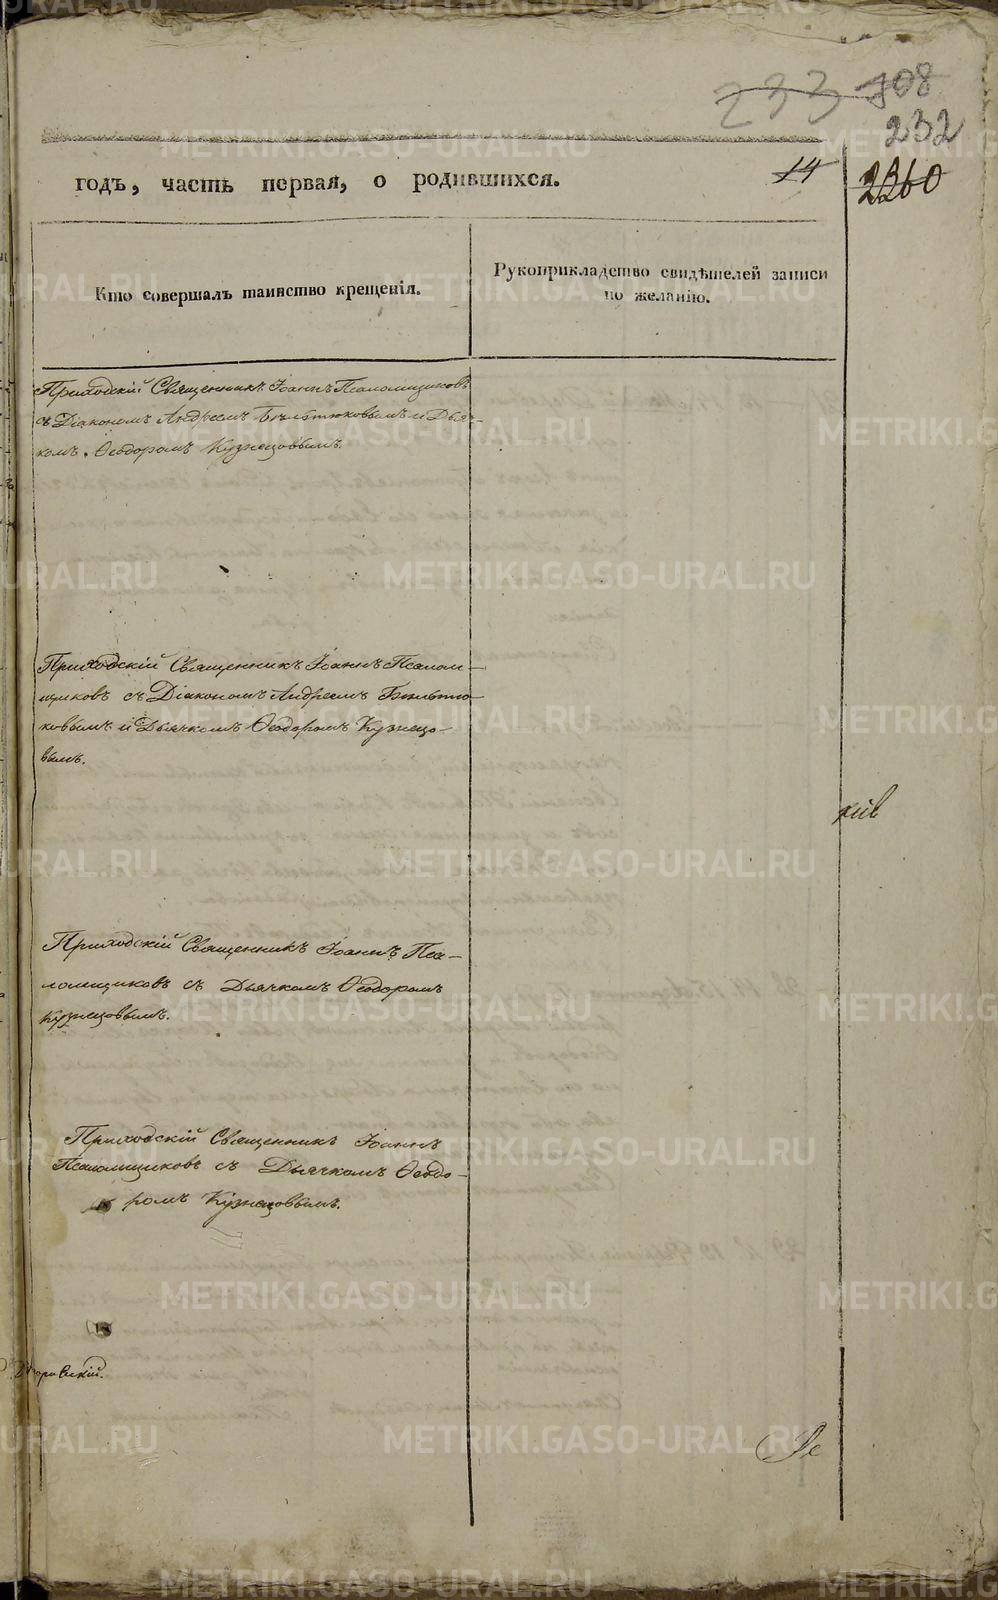 233 108
232
14
2260
годъ, часть первая, о родившихся.
Кто совершалъ таинство крещенія.
Рукоприкладство свидѣтелей записи
по желанію.
Приходскій Священникъ Іоаннъ Псаломщиковъ
съ Діакономъ Андреемъ Бѣльтюковымъ и Дьяч-
комъ Ѳеодоромъ Кузнецовымъ.
Приходскій Священникъ Іоаннъ Псалом-
щиковъ съ Діакономъ Андреемъ Бѣльтю-
ковымъ и Дьячкомъ Ѳеодоромъ Кузнецо-
вымъ.
Приходскій Священникъ Іоаннъ Пса-
ломщиковъ съ Дьячкомъ Ѳеодоромъ
Кузнецовымъ.
Приходскій Священникъ Іоаннъ
Псаломщиковъ съ Дьячкомъ Ѳеодо-
ромъ Кузнецовымъ.
METRIKI.GASO-URAL.RU